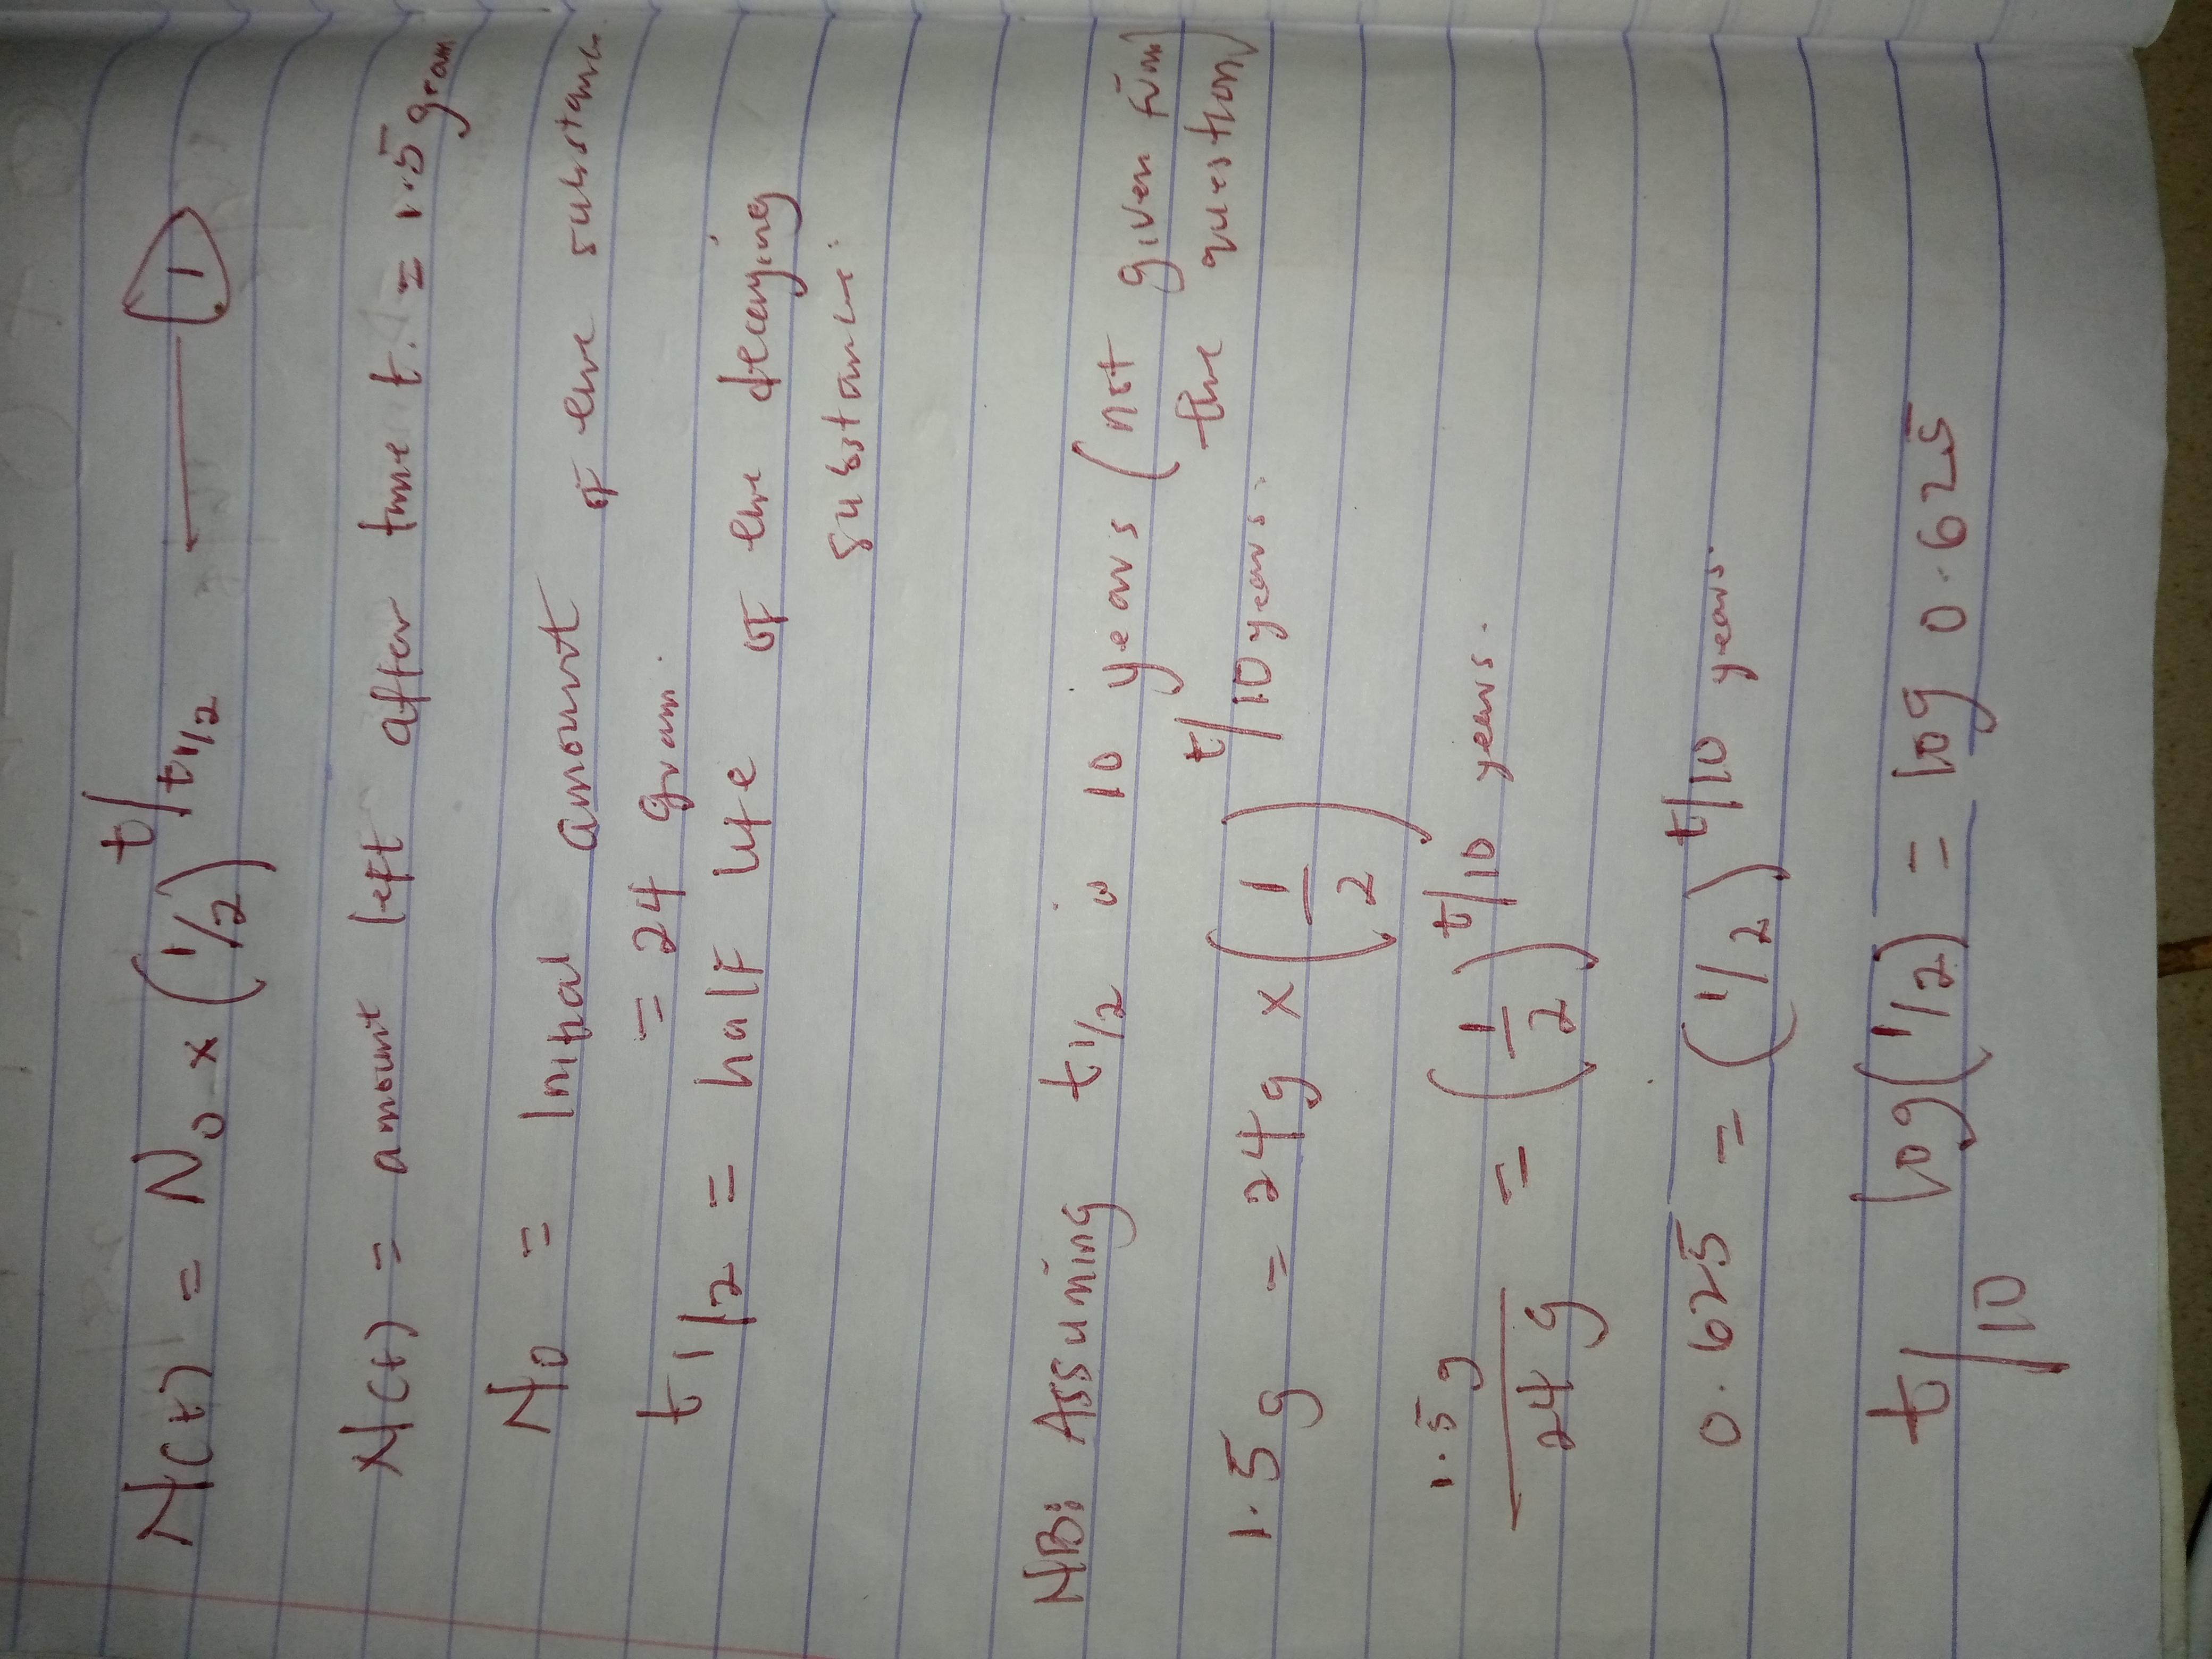 N(t) = N₀ x (1/2) t/t1/2 ——— (1)
N(t) = amount left after time t. = 1.5 gram
N₀ = Initial amount of the substance
= 24 gram.
t1/2 = half life of the decaying
substance.
NB: Assuming t1/2 is 10 years (not given from
the question)
1.5g = 24g x (1/2) t/10 years.
1.5g/24g = (1/2) t/10 years.
0.625 = (1/2) t/10 years.
t/10 log(1/2) = log 0.625